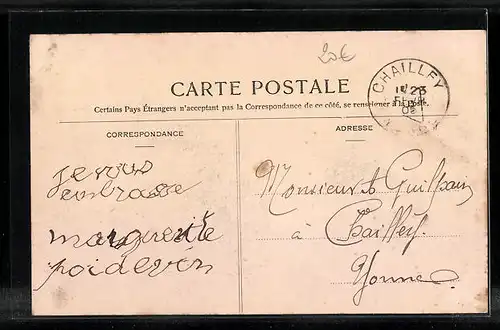 20€
CHAILLEY
23
CARTE POSTALE
Certains Pays Étrangers n'acceptant pas la Correspondance de ce côté, se renseigner à la Poste.
CORRESPONDANCE
ADRESSE
je vous
embrasse
marguerite
poidevin
Monsieur
à Chailley
Yonne